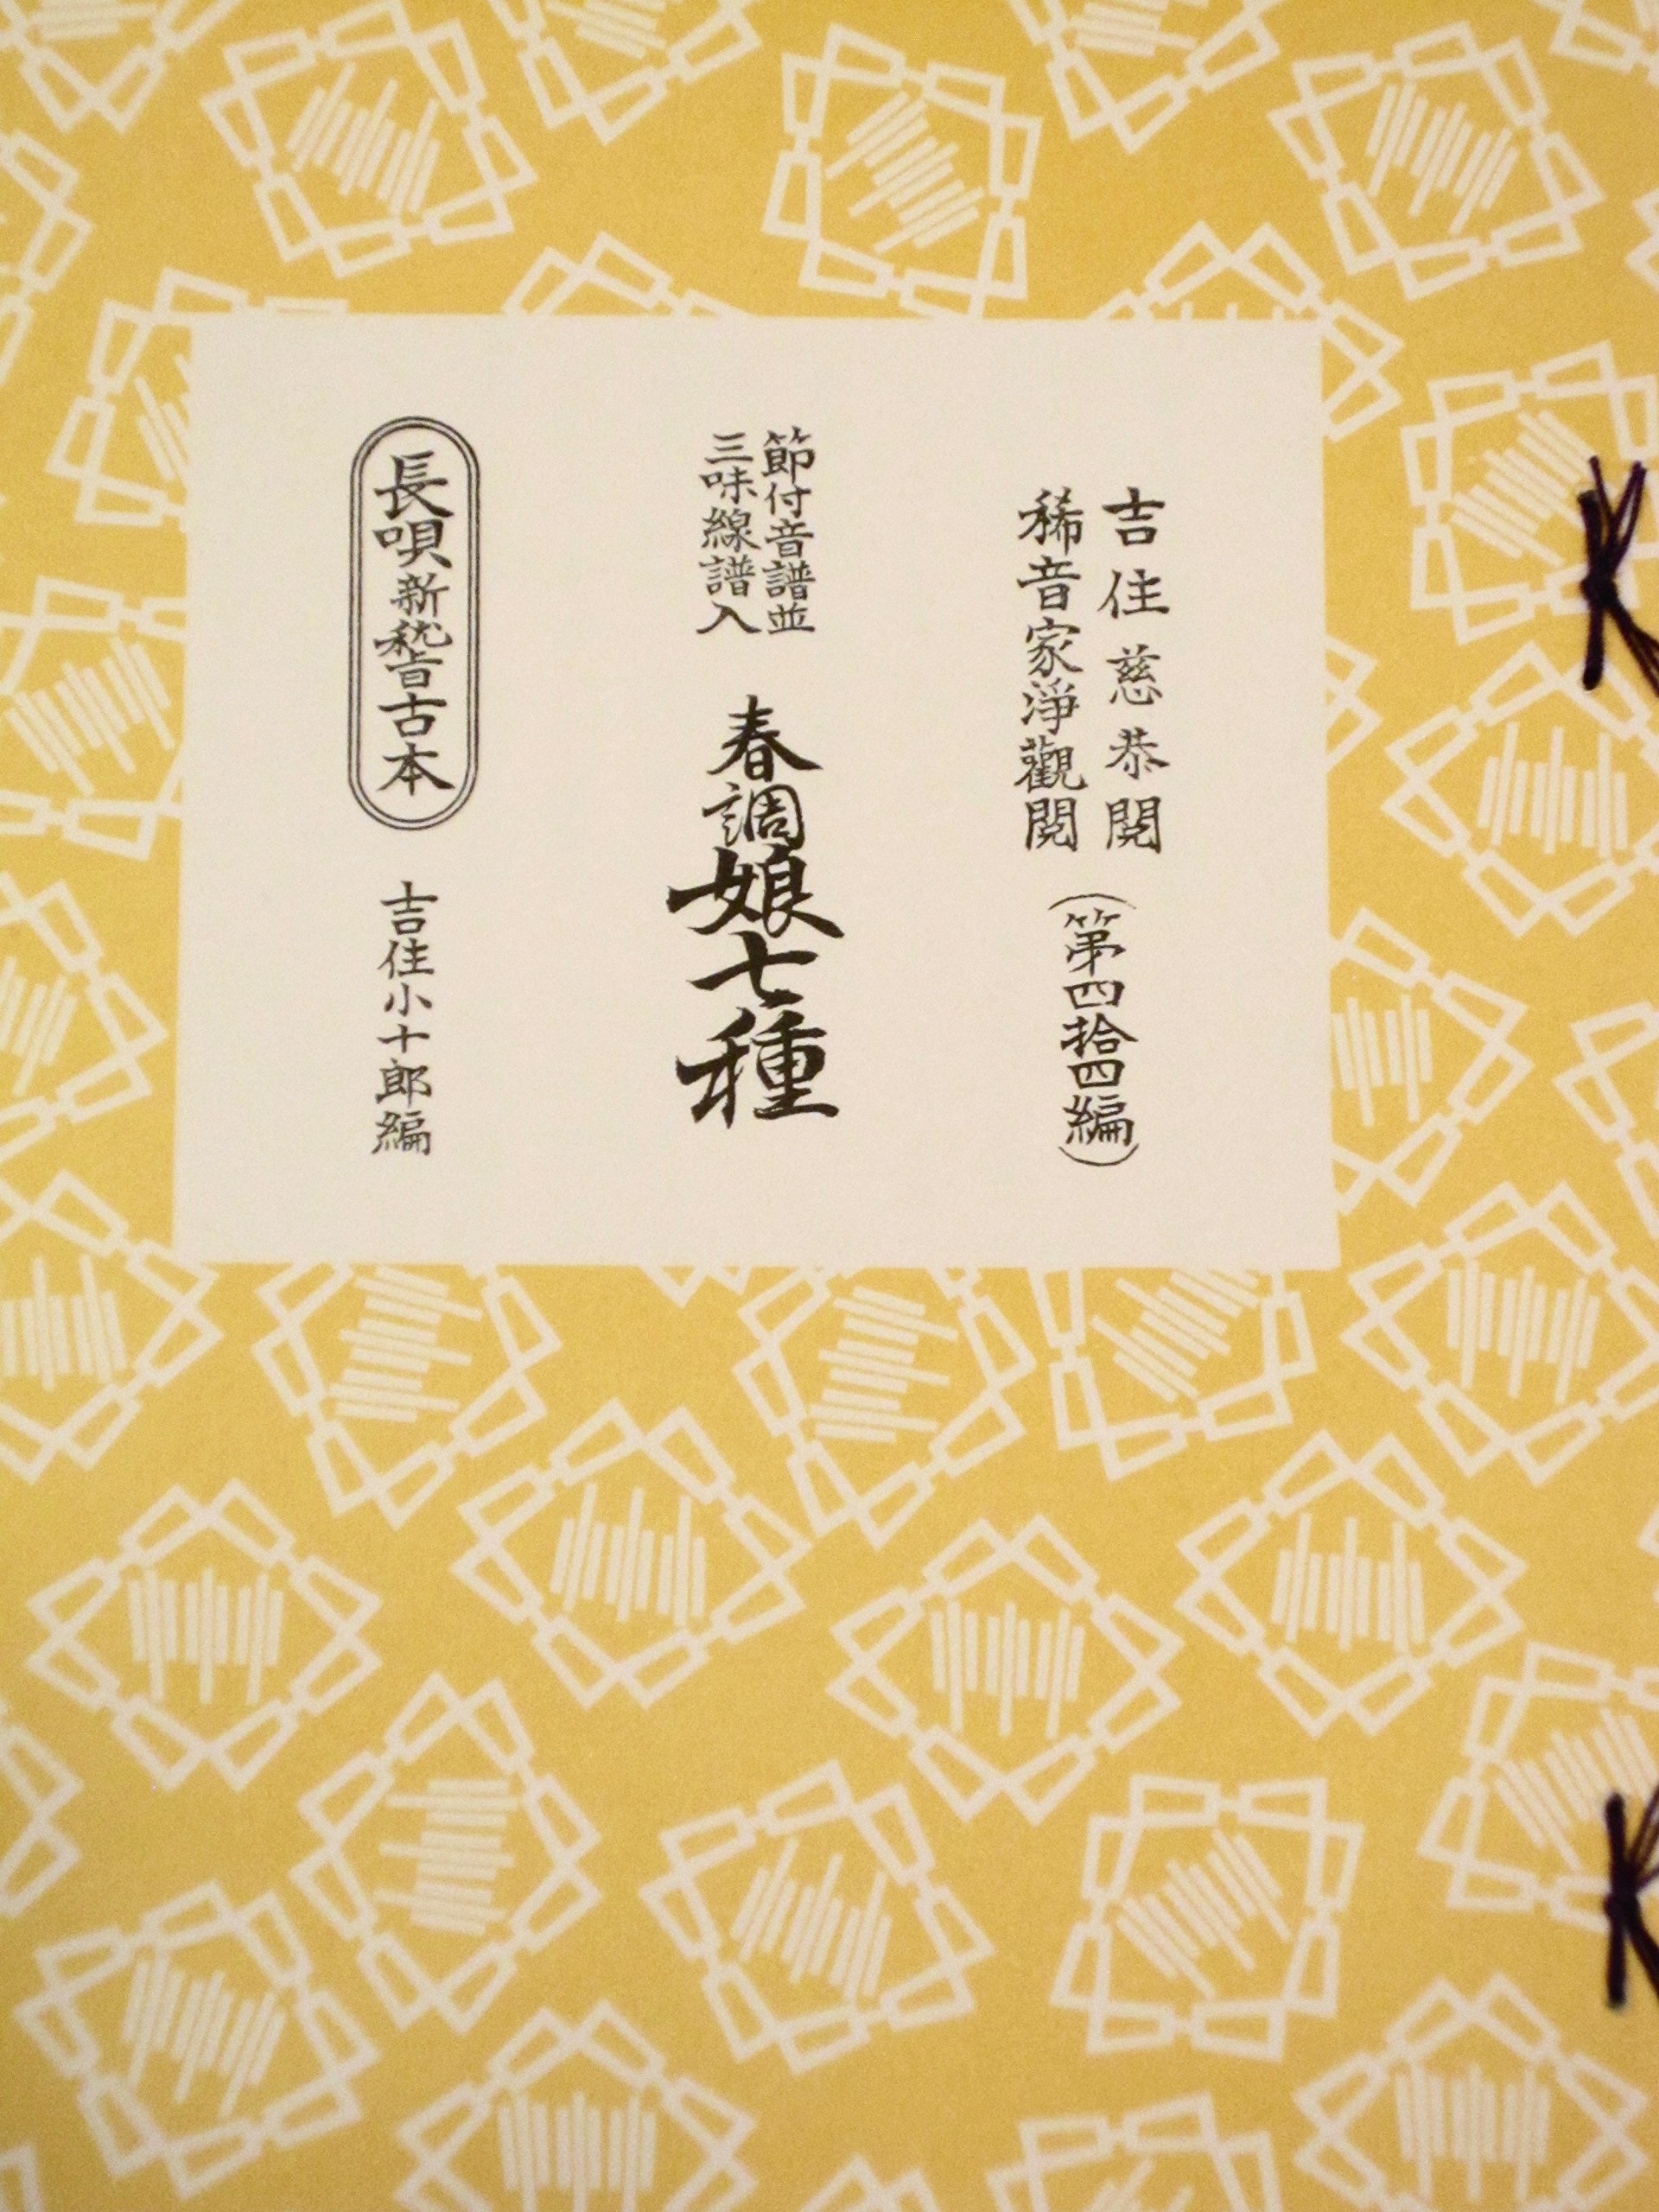 吉住慈恭閲
稀音家淨觀閲
(第四拾四編)
節付音譜並
三味線譜入
春調娘七種
長唄新稽古本
吉住小十郎編